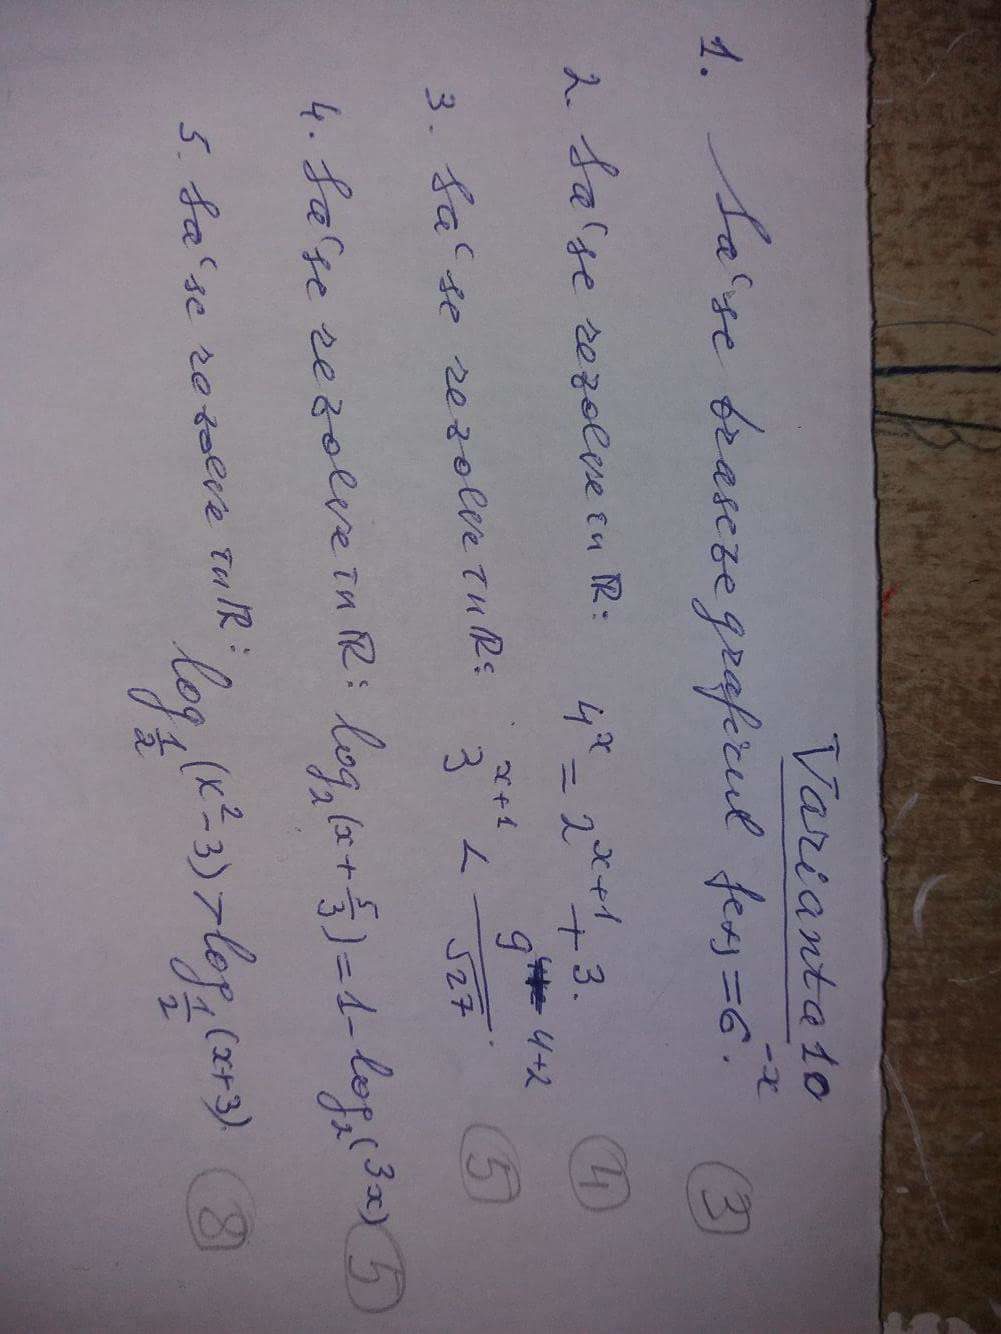 Varianta 10
1. Să se traseze graficul f(x) = 6^{-x}. (3)
2. Să se rezolve în ℝ: 4^x = 2^{x+1} + 3. (4)
3. Să se rezolve în ℝ: 3^{x+1} < \frac{9^{4+2}}{\sqrt{27}}. (5)
4. Să se rezolve în ℝ: log_2(x + \frac{5}{3}) = 1 - log_2(3x) (5)
5. Să se rezolve în ℝ: log_{\frac{1}{2}}(x^2 - 3) > log_{\frac{1}{2}}(x+3). (8)